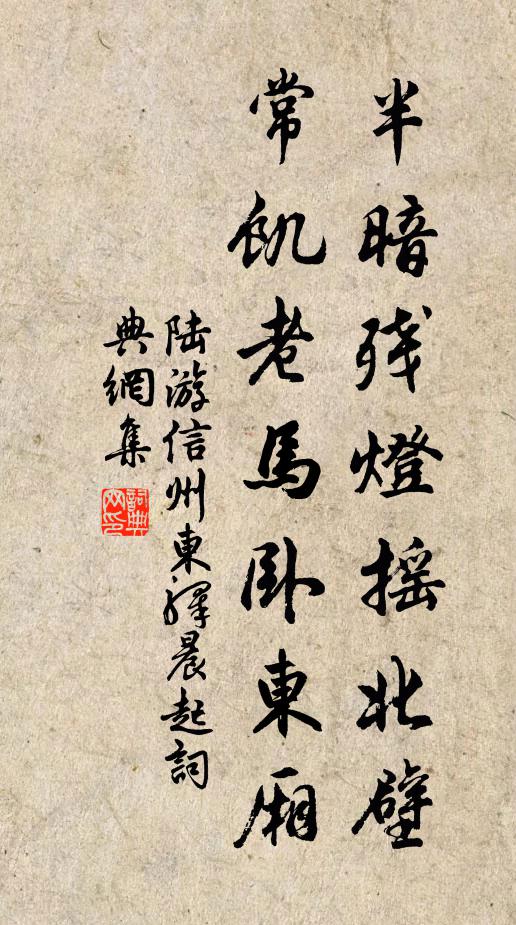 半暗残燈摇北壁
常飢老馬卧東廂
陆游信州東驛晨起詞
典網集
詞典网印